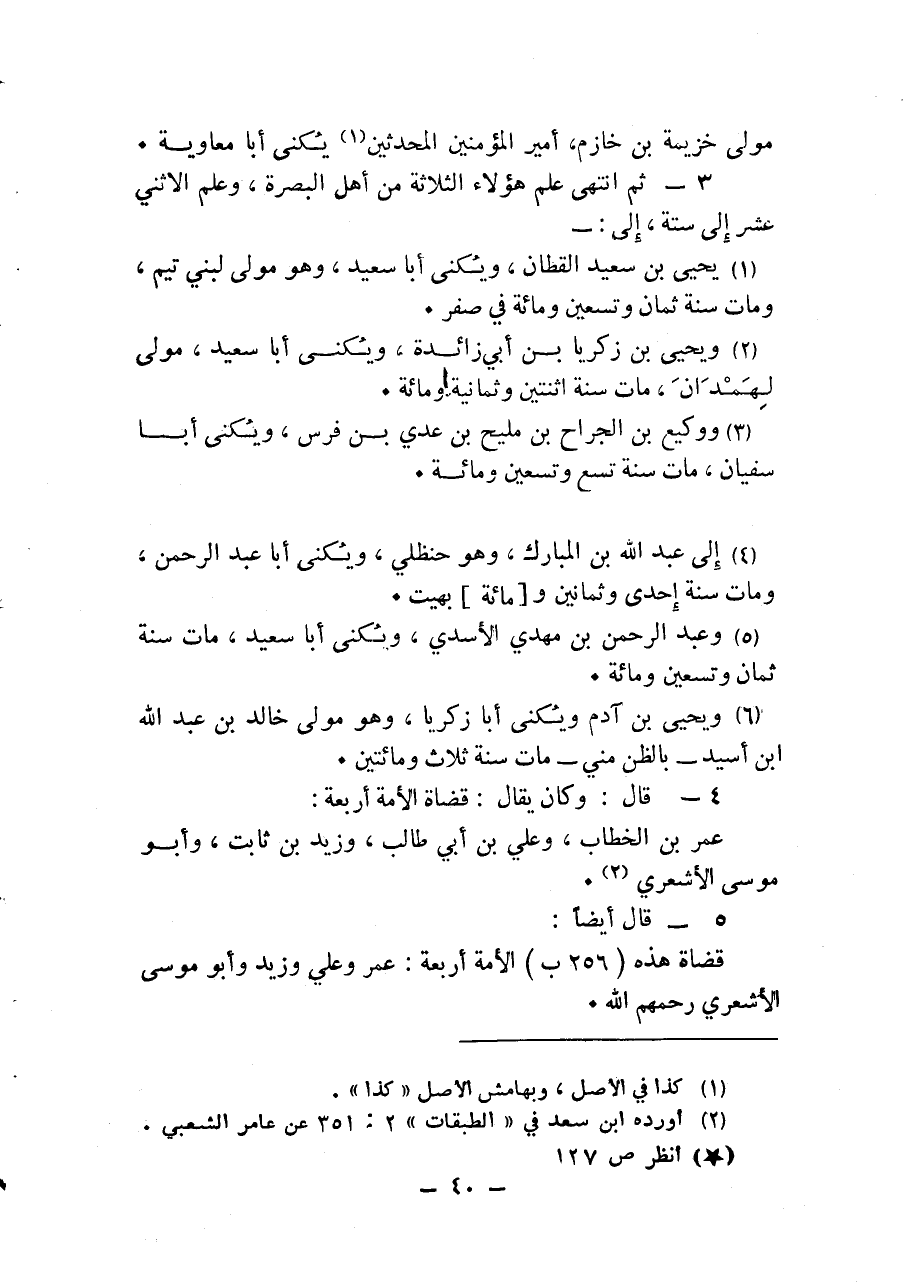 مولى خزيمة بن خازم، أمير المؤمنين المحدثين(١) يُكنى أبا معاويـة .
٣ ــ ثم انتهى علم هؤلاء الثلاثة من أهل البصرة ، وعلم الاثني
عشر إلى ستة ، إلى : ــ
(١) يحيى بن سعيد القطان ، ويُكنى أبا سعيد ، وهو مولى لبني تيم ،
ومات سنة ثمان وتسعين ومائة في صفر .
(٢) ويحيى بن زكريا بـن أبي زائـدة ، ويُكنـى أبا سعيد ، مولى
لِهَمْدَانَ ، مات سنة اثنتين وثمانية ومائة .
(٣) ووكيع بن الجراح بن مليح بن عدي بـن فرس ، ويُكنى أبـا
سفيان ، مات سنة تسع وتسعين ومائـة .
(٤) إلى عبد الله بن المبارك ، وهو حنظلي ، ويُكنى أبا عبد الرحمن ،
ومات سنة إحدى وثمانين و [ مائة ] بهيت .
(٥) وعبد الرحمن بن مهدي الأسدي ، ويُكنى أبا سعيد ، مات سنة
ثمان وتسعين ومائة .
(٦) ويحيى بن آدم ويُكنى أبا زكريا ، وهو مولى خالد بن عبد الله
ابن أسيد ــ بالظن مني ــ مات سنة ثلاث ومائتين .
٤ ــ قال : وكان يقال : قضاة الأمة أربعة :
عمر بن الخطاب ، وعلي بن أبي طالب ، وزيد بن ثابت ، وأبـو
موسى الأشعري (٢) .
٥ ــ قال أيضاً :
قضاة هذه ( ٢٥٦ ب ) الأمة أربعة : عمر وعلي وزيد وأبو موسى
الأشعري رحمهم الله .
(١) كذا في الاصل ، وبهامش الاصل « كذا » .
(٢) أورده ابن سعد في « الطبقات » ٢ : ٣٥١ عن عامر الشعبي .
(★) انظر ص ١٢٧
ــ ٤٠ ــ